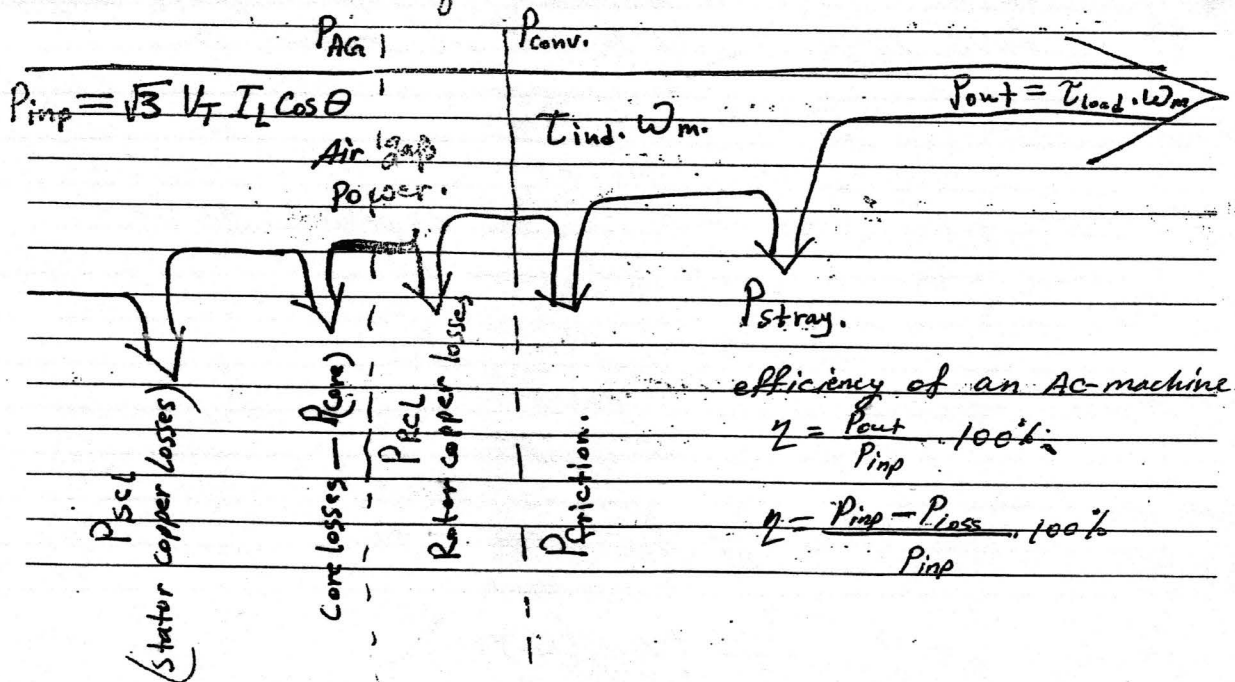 P_AG
P_conv.
P_inp = √3 V_T I_L Cos θ
τ_ind. ω_m.
P_out = τ_load . ω_m
Air gap
power.
P_SCL
(stator copper losses)
core losses — P_core)
P_RCL
Rotor copper losses
P_friction.
P_stray.
efficiency of an AC-machine
η = P_out / P_inp . 100%
η = P_inp - P_loss / P_inp . 100%